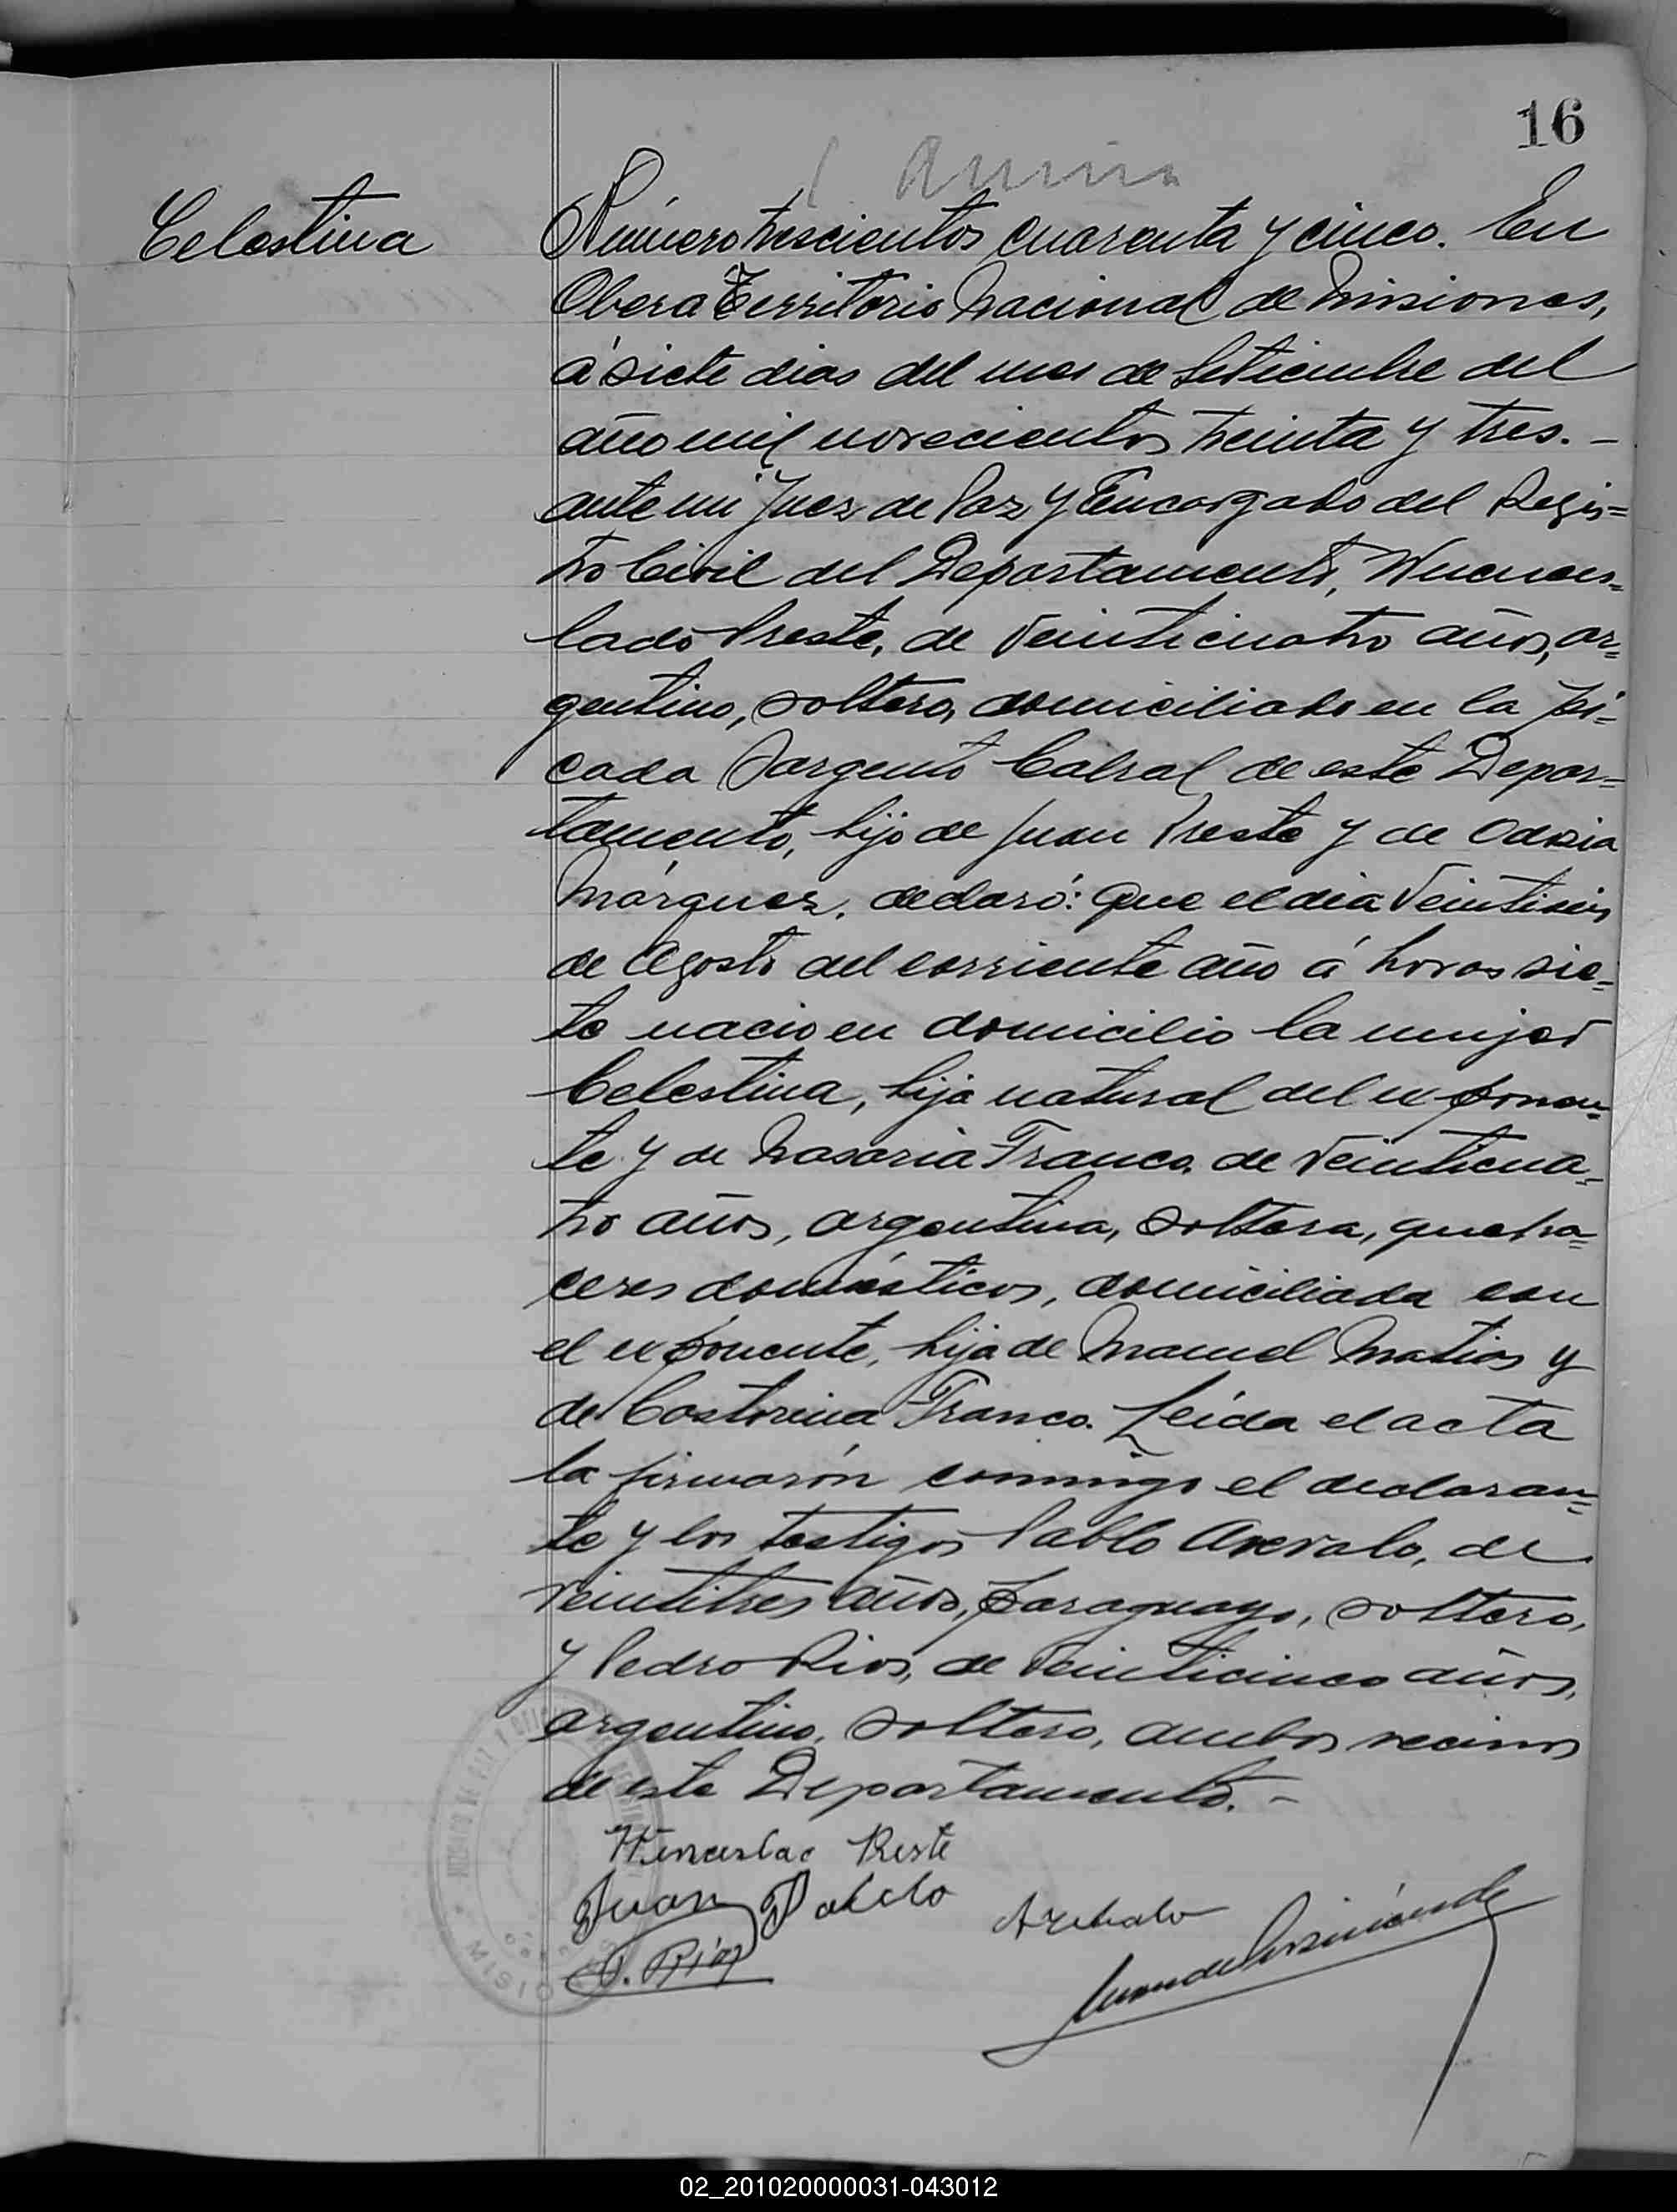 16
Celestina
Número trescientos cuarenta y cinco. En
Oberá Territorio Nacional de Misiones,
á siete dias del mes de Setiembre del
año mil novecientos treinta y tres. -
ante mi Juez de Paz y Encargado del Regis=
tro Civil del Departamento, Wences=
lado Preste, de veinticuatro años, ar=
gentino, soltero, domiciliado en la Pi=
cada Sargento Cabral de este Depar=
tamento, hijo de Juan Preste y de
Márquez, declaró: que el dia veintiseis
de Agosto del corriente año á horas sie=
te nacio en domicilio la mujer
Celestina, hija natural del exponen=
te y de Nasaria Franco, de veinticua=
tro años, argentina, soltera, queha=
ceres domésticos, domiciliada con
el exponente, hija de Manuel Matias y
de Castorina Franco. Leída el acta
la firmarón conmigo el declaran=
te y los testigos Pablo Arevalo, de
veintitres años, paraguayo, soltero,
y Pedro Rios, de veinticinco años,
argentino, soltero, ambos vecinos
de este Departamento. -
Wenceslao Reste
Juan Pablo
P. Ríos
MISIO
02_201020000031-043012